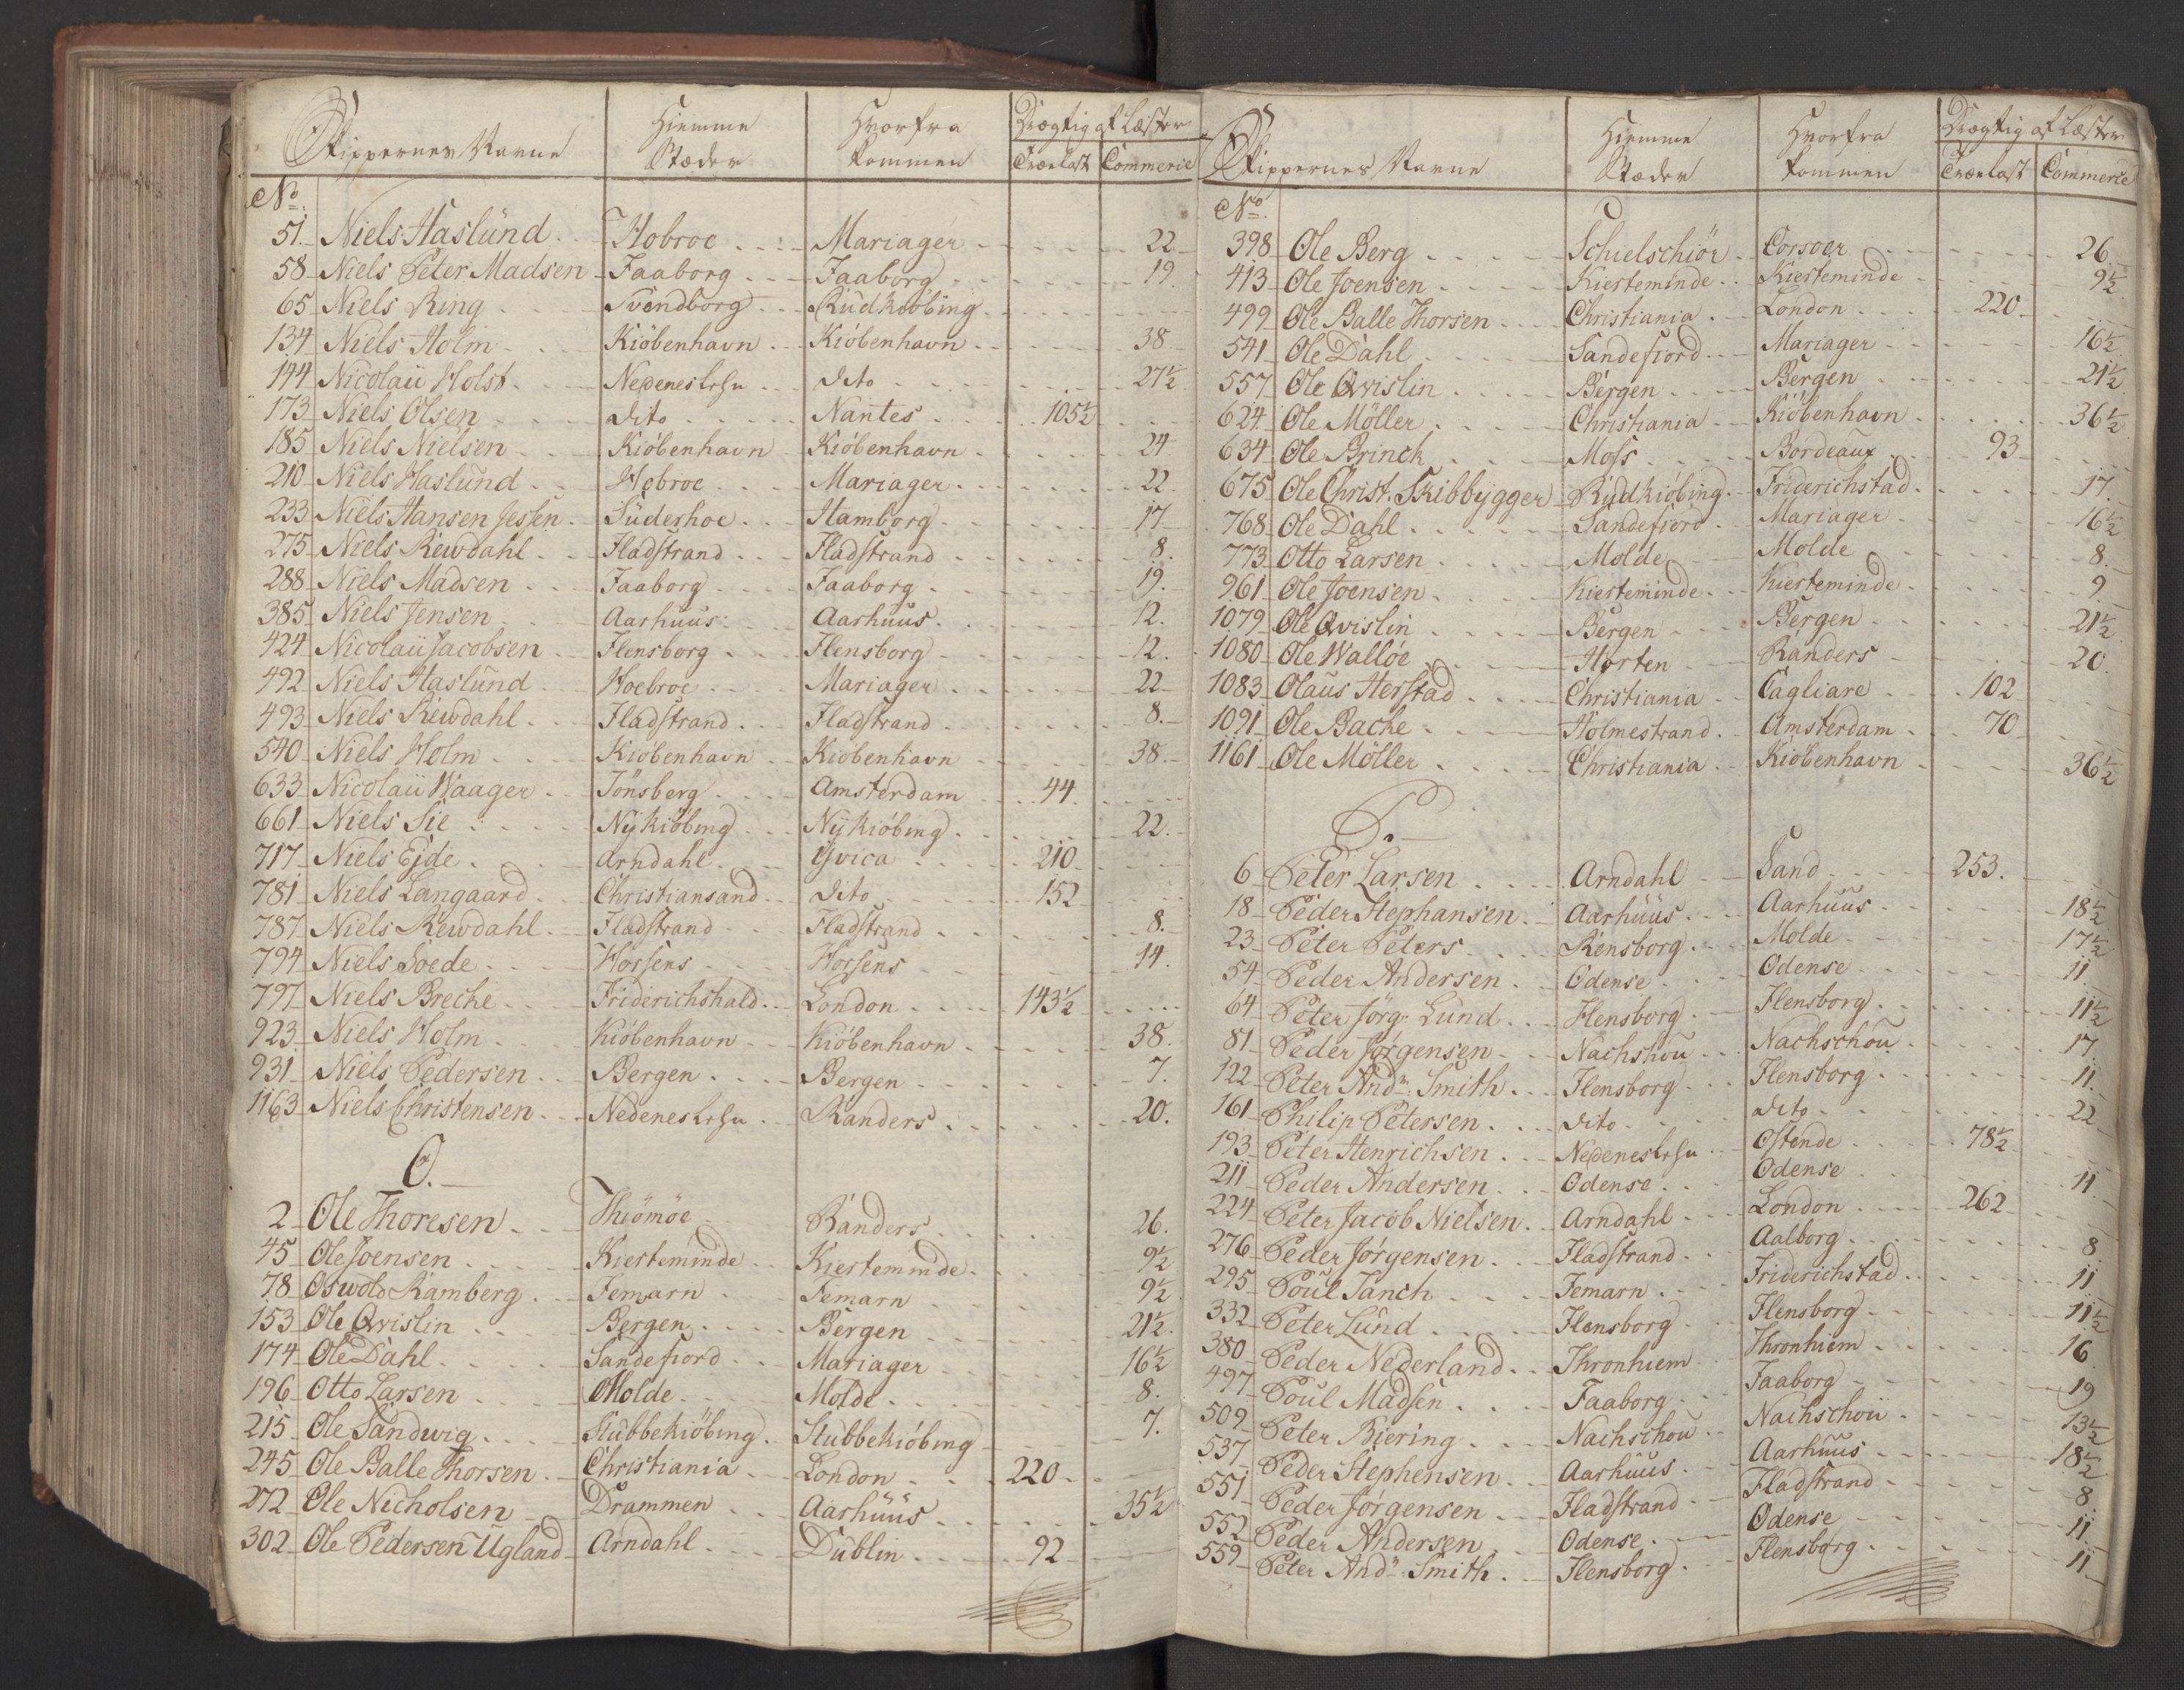 Skippernes Navne Hiemme Stæder Hvorfra kommen Drægtig af Læster Trælast Commerce
No.
51 Niels Haslund Hobroe Mariager 22
58 Niels Peter Madsen Faaborg Faaborg 19
65 Niels Ring Svendborg Rudkiöbing
134 Niels Holm Kiöbenhavn Kiöbenhavn 38
144 Nicolaii Holst Nedenes dito 27½
173 Niels Olsen dito Nantes 105½
185 Niels Nielsen Kiöbenhavn Kiöbenhavn 24
210 Niels Haslund Hobroe Mariager 22
233 Niels Hansen Jessen Süderhoe Hamborg 17
275 Niels Rewdahl Fladstrand Fladstrand 8
288 Niels Madsen Faaborg Faaborg 19
385 Niels Jensen Aarhuus Aarhuus 12
424 Nicolaii Jacobsen Flensborg Flensborg 12
492 Niels Haslund Hoebroe Mariager 22
493 Niels Rewdahl Fladstrand Fladstrand 8
540 Niels Holm Kiöbenhavn Kiöbenhavn 38
633 Nicolaii Waager Tönsberg Amsterdam 44
661 Niels Sie Nykiöbing Nykiöbing 22
717 Niels Ejde Arndahl Yvica 210
781 Niels Langaard Christiansand dito 152
787 Niels Rewdahl Fladstrand Fladstrand 8
794 Niels Soede Horsens Horsens 14
797 Niels Breche Friderichshald London 143½
923 Niels Holm Kiöbenhavn Kiöbenhavn 38
931 Niels Pedersen Bergen Bergen 7
1163 Niels Christensen Nedenes Randers 20
O.
2 Ole Thoresen Thiömöe Randers 26
45 Ole Joensen Kierteminde Kierteminde 9½
78 Oswold Ramberg Femarn Femarn 9½
153 Ole Qvislin Bergen Bergen 21½
174 Ole Dahl Sandefiord Mariager 16½
196 Otto Larsen Molde Molde 8
215 Ole Sandwig Stubbekiöbing Stubbekiöbing 7
245 Ole Balle Thorsen Christiania London 220
272 Ole Nicholsen Drammen Aarhuus 35½
302 Ole Pedersen Ugland Arndahl Dublin 92
Skippernes Navne Hiemme Stæder Hvorfra kommen Drægtig af Læster Trælast Commerce
No.
398 Ole Berg Schielschiör Corsoer 26
413 Ole Joensen Kierteminde Kierteminde 9½
499 Ole Balle Thorsen Christiania London 220
541 Ole Dahl Sandefiord Mariager 16½
557 Ole Qvislin Bergen Bergen 21½
624 Ole Möller Christiania Kiöbenhavn 36½
634 Ole Brinch Moss Bordeaux 93
675 Ole Christ. Skibbygger Rudkiöbing Friderichstad 17
768 Ole Dahl Sandefiord Mariager 16½
773 Otto Larsen Molde Molde 8
961 Ole Joensen Kierteminde Kierteminde 9
1079 Ole Qvislin Bergen Bergen 21½
1080 Ole Walloe Horten Randers 20
1083 Olaus Herstad Christiania Cagliare 102
1091 Ole Bache Holmestrand Amsterdam 70
1161 Ole Möller Christiania Kiöbenhavn 36½
P.
6 Peter Larsen Arndahl Sand 253
18 Peder Stephansen Aarhuus Aarhuus 18½
23 Peter Peters Rensborg Molde 17½
54 Peder Andersen Odense Odense 11
64 Peter Jörg: Lund Flensborg Flensborg 11½
81 Peder Jörgensen Nachskou Nachschou 17
122 Peter Andr: Smith Flensborg Flensborg 11
161 Philip Petersen dito dito 22
193 Peter Henrichsen Nedenes Ostende 78½
211 Peder Andersen Odense Odense 11
224 Peter Jacob Nielsen Arndahl London 262
276 Peder Jörgensen Fladstrand Aalborg 8
295 Poul Tanch Femarn Friderichstad 11
332 Peter Lund Flensborg Flensborg 11½
380 Peder Nederland Thronhiem Thronhiem 16
497 Poul Madsen Faaborg Faaborg 19
509 Peter Biering Nachschou Nachschou 13½
537 Peder Stephensen Aarhuus Aarhuus 18½
551 Peder Jörgensen Fladstrand Fladstrand 8
552 Peder Andersen Odense Odense 11
559 Peter Andr: Smith Flensborg Flensborg 11